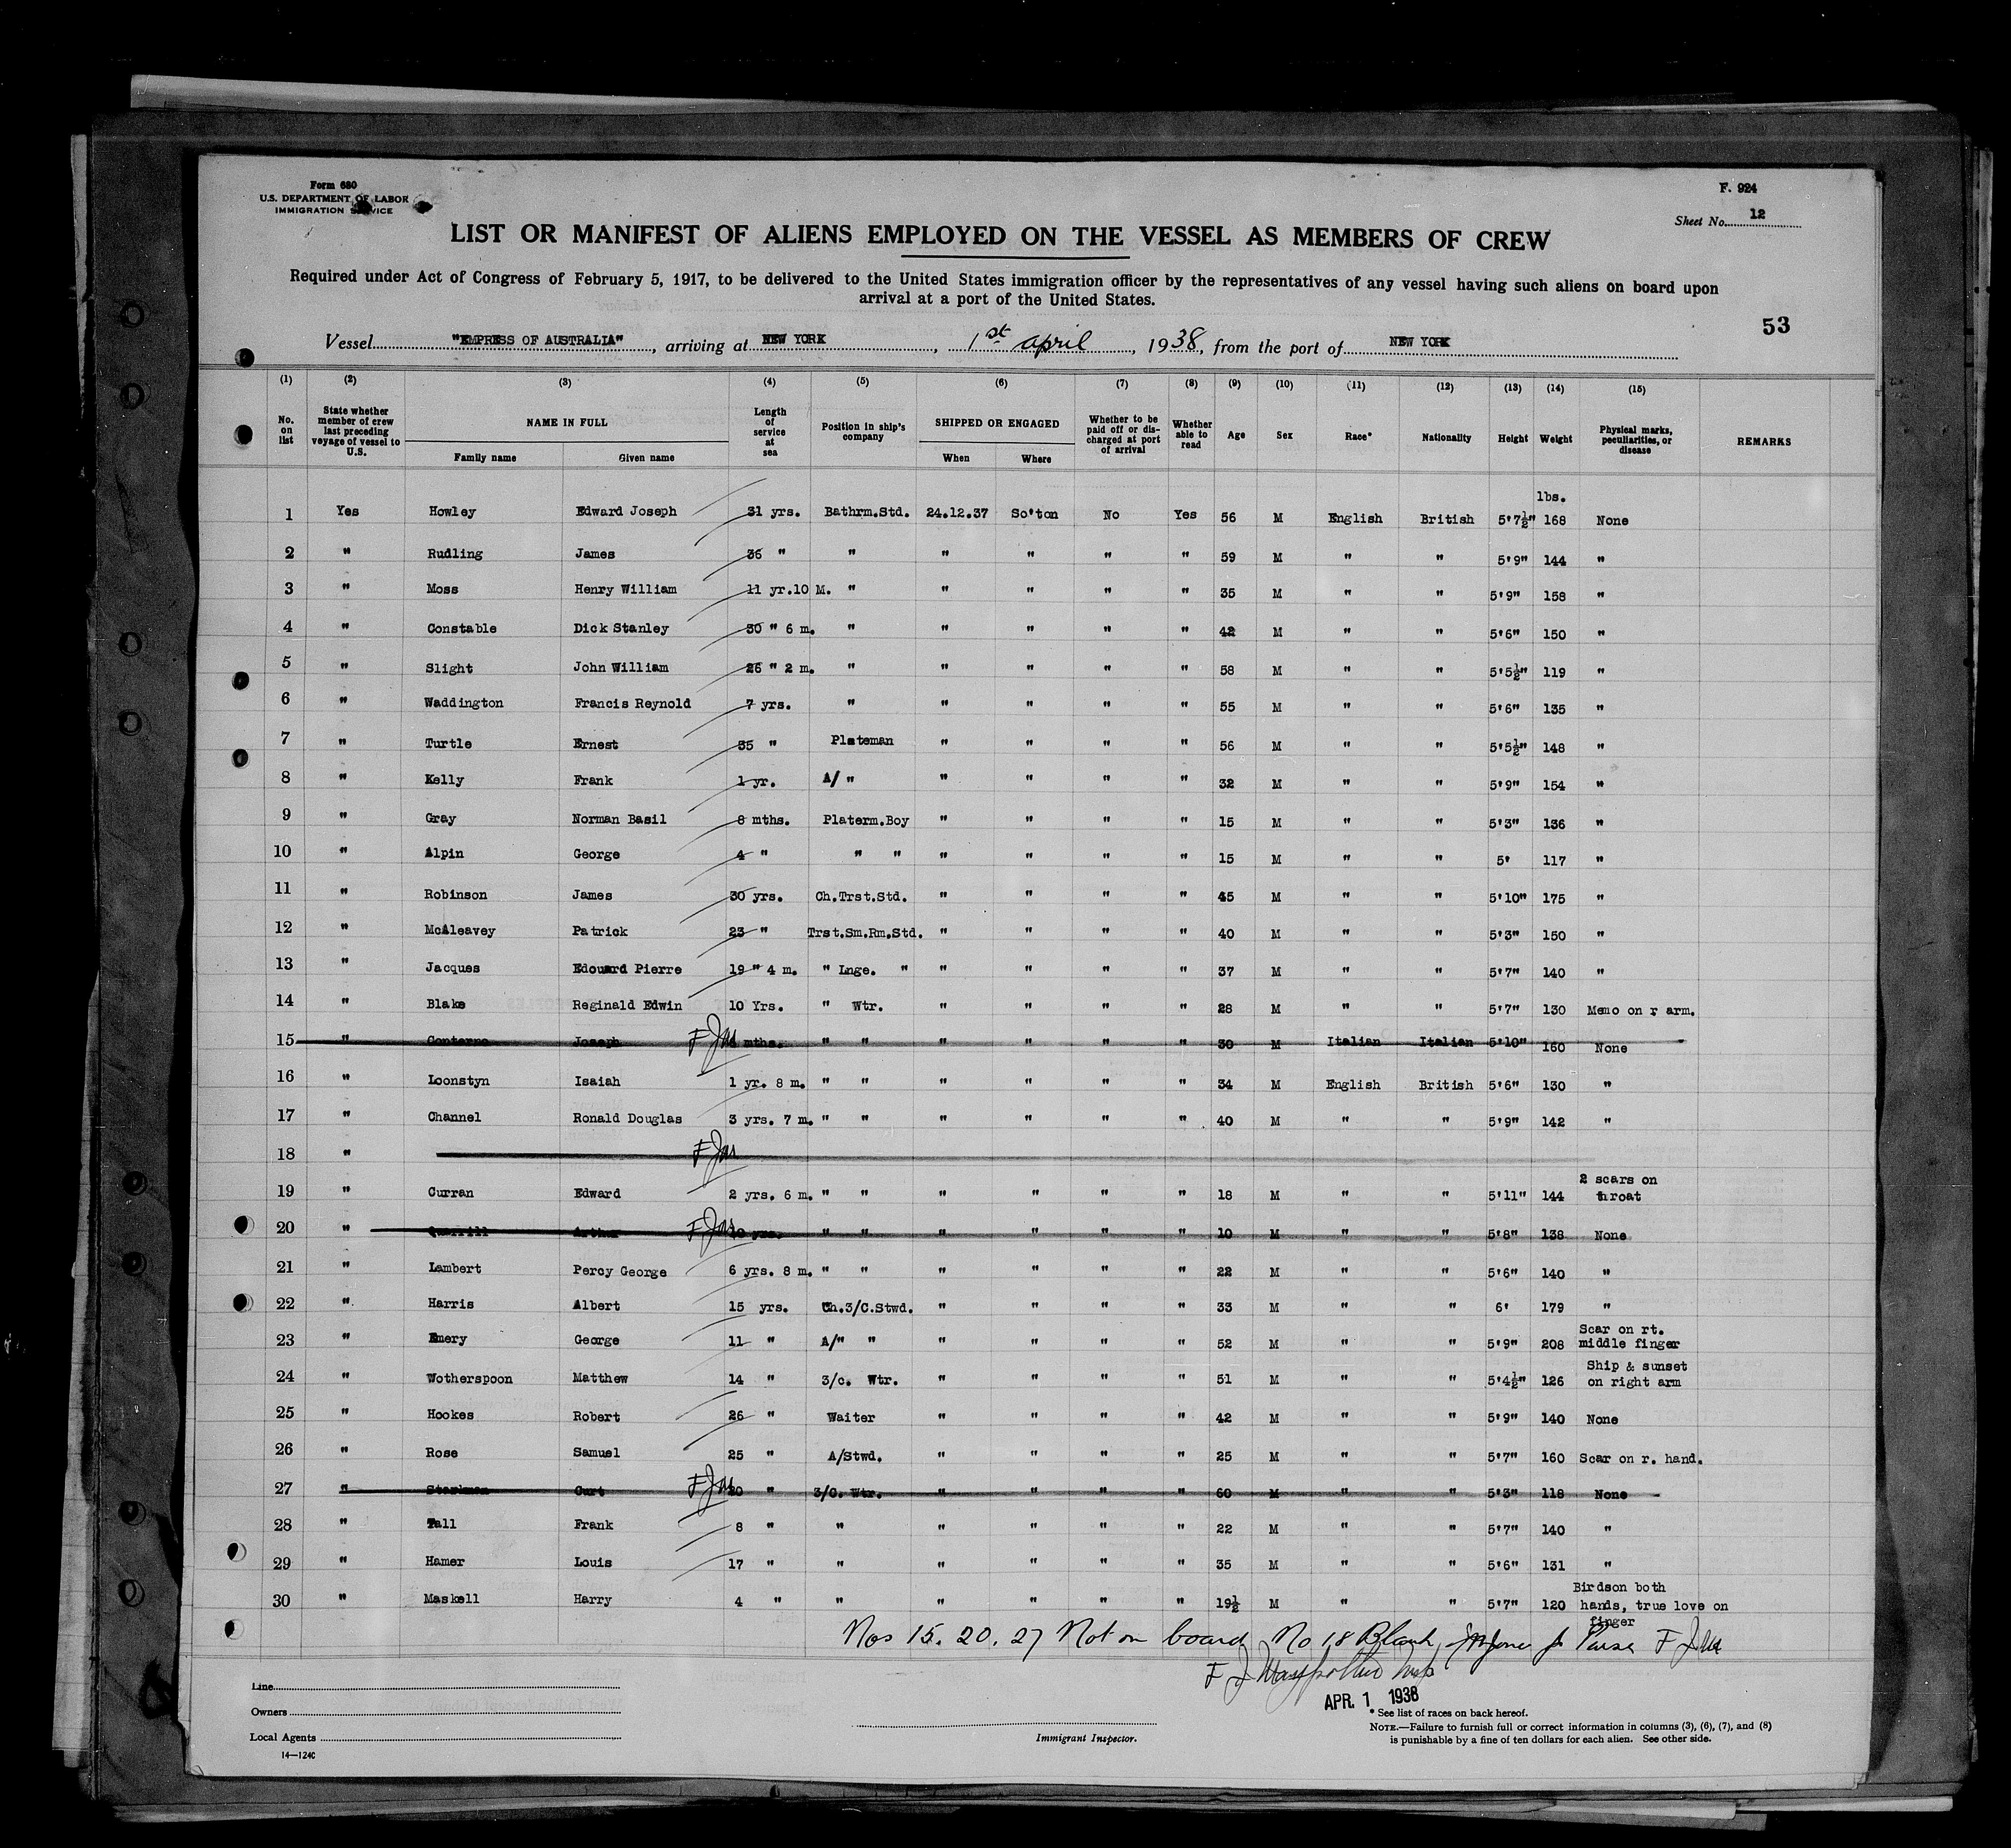 Form 680
U.S. DEPARTMENT OF LABOR
IMMIGRATION SERVICE
F. 924
Sheet No. 12
LIST OR MANIFEST OF ALIENS EMPLOYED ON THE VESSEL AS MEMBERS OF CREW
Required under Act of Congress of February 5, 1917, to be delivered to the United States immigration officer by the representatives of any vessel having such aliens on board upon
arrival at a port of the United States.
53
Vessel "EMPRESS OF AUSTRALIA", arriving at NEW YORK, 1st april, 1938, from the port of NEW YORK
(1) (2) (3) (4) (5) (6) (7) (8) (9) (10) (11) (12) (13) (14) (15)
No. on list State whether member of crew last preceding voyage of vessel to U.S. NAME IN FULL Family name Given name Length of service at sea Position in ship's company SHIPPED OR ENGAGED When Where Whether to be paid off or discharged at port of arrival Whether able to read Age Sex Race* Nationality Height Weight Physical marks, peculiarities, or disease REMARKS
lbs.
1 Yes Howley Edward Joseph 31 yrs. Bathrm.Std. 24.12.37 So'ton No Yes 56 M English British 5'7½" 168 None
2 " Rudling James 36 " " " " " " 59 M " " 5'9" 144 "
3 " Moss Henry William 11 yr.10 M. " " " " " 35 M " " 5'9" 158 "
4 " Constable Dick Stanley 30 " 6 m. " " " " " 42 M " " 5'6" 150 "
5 " Slight John William 26 " 2 m. " " " " " 58 M " " 5'5½" 119 "
6 " Waddington Francis Reynold 7 yrs. " " " " " 55 M " " 5'6" 135 "
7 " Turtle Ernest 35 " Plateman " " " " 56 M " " 5'5½" 148 "
8 " Kelly Frank 1 yr. A/ " " " " " 32 M " " 5'9" 154 "
9 " Gray Norman Basil 8 mths. Platerm.Boy " " " " 15 M " " 5'3" 136 "
10 " Alpin George 4 " " " " " " " 15 M " " 5' 117 "
11 " Robinson James 30 yrs. Ch.Trst.Std. " " " " 45 M " " 5'10" 175 "
12 " McAleavey Patrick 23 " Trst.Sm.Rm.Std. " " " " 40 M " " 5'3" 150 "
13 " Jacques Edouard Pierre 19 " 4 m. " Lnge. " " " " " 37 M " " 5'7" 140 "
14 " Blake Reginald Edwin 10 Yrs. " Wtr. " " " " 28 M " " 5'7" 130 Memo on r arm.
15 " Joseph mths. " " " " " " 30 M Italian Italian 5'10" 160 None
16 " Loonstyn Isaiah 1 yr. 8 m. " " " " " " 34 M English British 5'6" 130 "
17 " Channel Ronald Douglas 3 yrs. 7 m. " " " " " " 40 M " " 5'9" 142 "
18 "
19 " Curran Edward 2 yrs. 6 m. " " " " " " 18 M " " 5'11" 144 2 scars on throat
20 " Arthur yrs. " " " " " " 10 M " " 5'8" 138 None
21 " Lambert Percy George 6 yrs. 8 m. " " " " " " 22 M " " 5'6" 140 "
22 " Harris Albert 15 yrs. Ch.3/C.Stwd. " " " " 33 M " " 6' 179 "
23 " Emery George 11 " A/" " " " " " 52 M " " 5'9" 208 Scar on rt. middle finger
24 " Wotherspoon Matthew 14 " 3/c. Wtr. " " " " 51 M " " 5'4½" 126 Ship & sunset on right arm
25 " Hookes Robert 26 " Waiter " " " " 42 M " " 5'9" 140 None
26 " Rose Samuel 25 " A/Stwd. " " " " 25 M " " 5'7" 160 Scar on r. hand.
27 " Curt " 3/C. Wtr. " " " " 60 M " " 5'3" 118 None
28 " Tall Frank 8 " " " " " " 22 M " " 5'7" 140 "
29 " Hamer Louis 17 " " " " " " 35 M " " 5'6" 131 "
30 " Maskell Harry 4 " " " " " " 19½ M " " 5'7" 120 Birdson both hands, true love on finger
Nos 15. 20. 27 Not on board No 18 Blank
APR. 1 1938
Line
Owners
Local Agents
14—1240
Immigrant Inspector.
* See list of races on back hereof.
NOTE.—Failure to furnish full or correct information in columns (3), (6), (7), and (8)
is punishable by a fine of ten dollars for each alien. See other side.